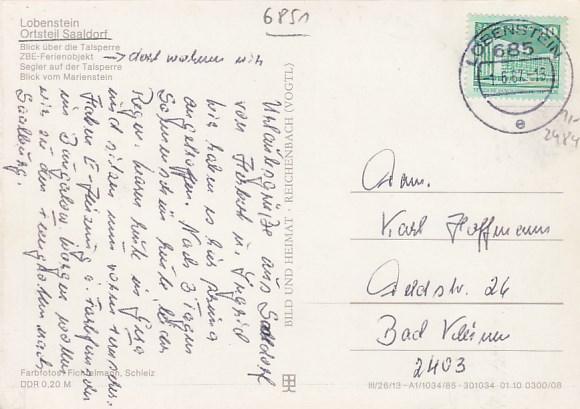 6851
Lobenstein
Ortsteil Saaldorf
Blick über die Talsperre
ZBE-Ferienobjekt → dort wohnen wir
Segler auf der Talsperre
Blick vom Marienstein
Urlaubsgrüße aus Saaldorf
von Herbert u. Ingrid
Wir haben es hier prima
angetroffen. Nach 3 Tagen
Sonnenschein heute
Regen. Waren heute in Gera
und sitzen nun
haben E-Heizung u. Farbfernseher
im Bungalow. Morgen wollen
wir zu den
Saalburg.
BILD UND HEIMAT · REICHENBACH (VOGTL)
LOBENSTEIN
685
10
e
2484
Fam.
Karl Hoffmann
Feldstr. 24
Bad Kleinen
2403
Farbfotos: Fichtelmann, Schleiz
DDR 0,20 M
III/26/13 - A1/1034/85 - 301034 01 10 0300/08